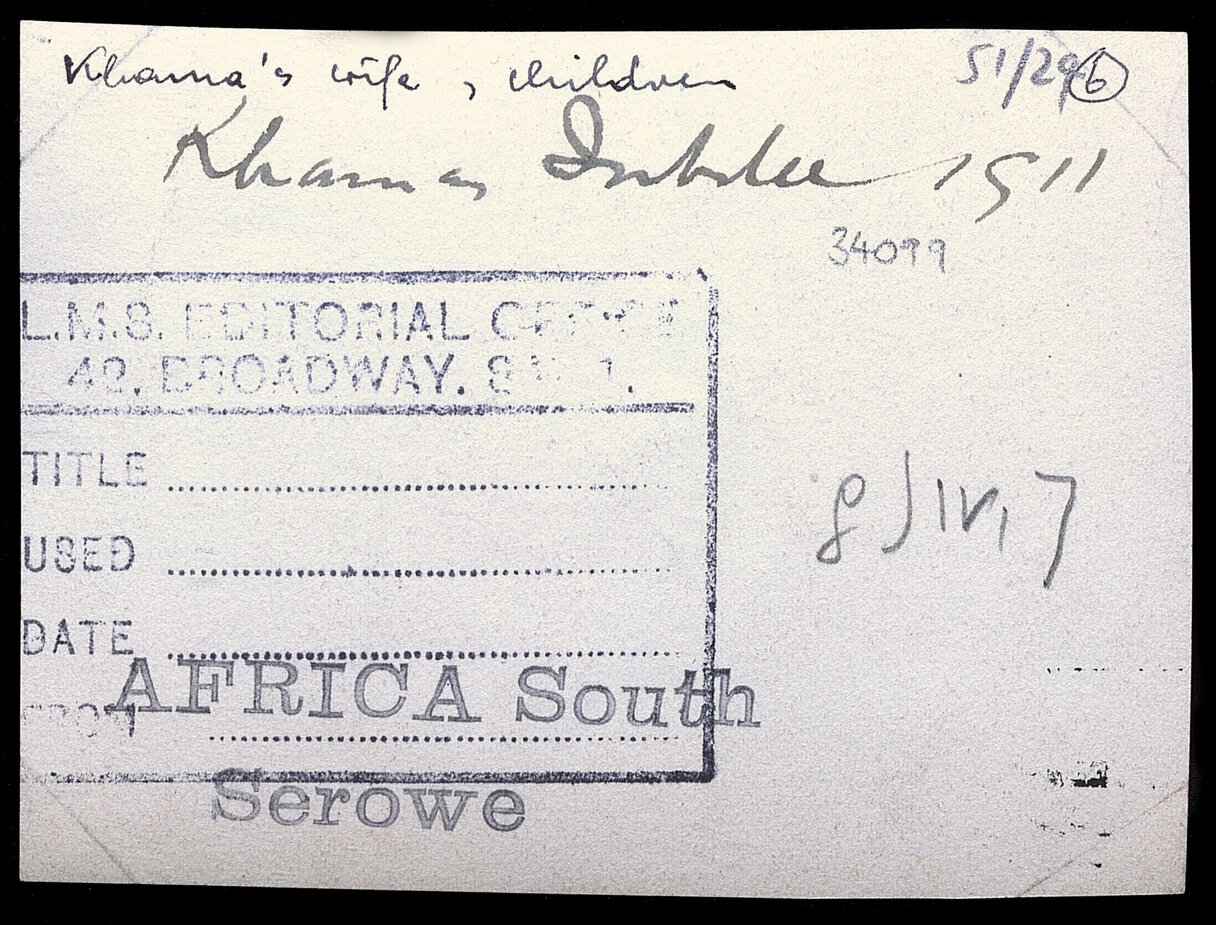 Khama's wife, children 51/29 6
Khamas Jubilee 1911
34099
L.M.S. EDITORIAL OFFICE
42, BROADWAY. S.W.1.
TITLE
USED
DATE
FROM
AFRICA South
Serowe